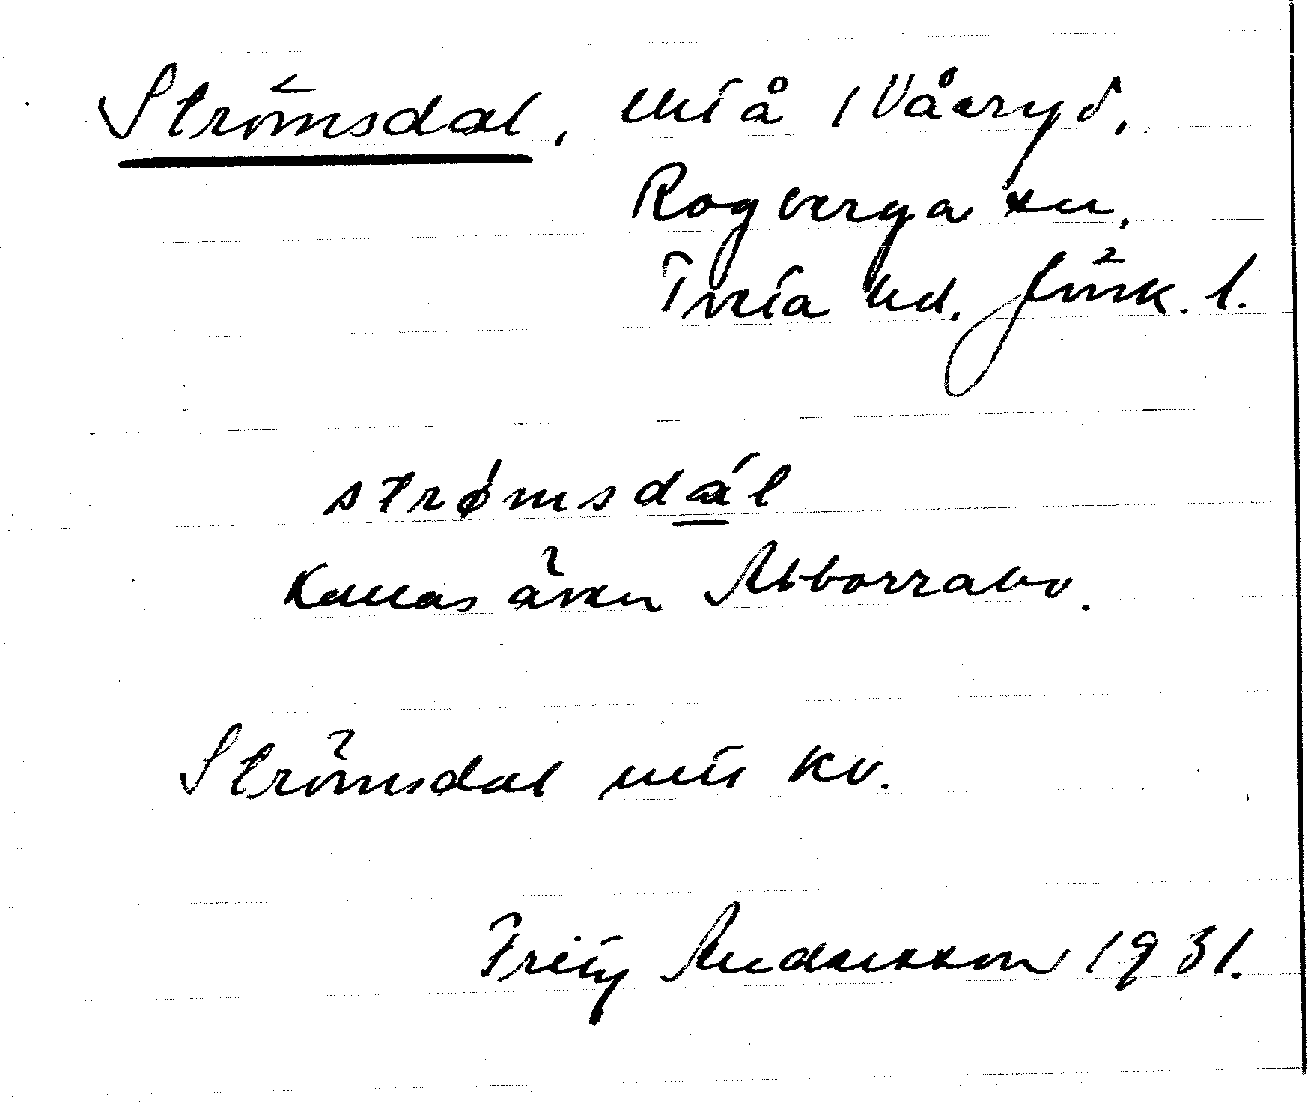 Strömsdal, å 1 Våeryd,
Rogberga sn,
Tveta hd. Jönk. l.
strømsdál
Kallas även Abborrabo.
Strömsdal kv.
Fritz Andersson 1931.